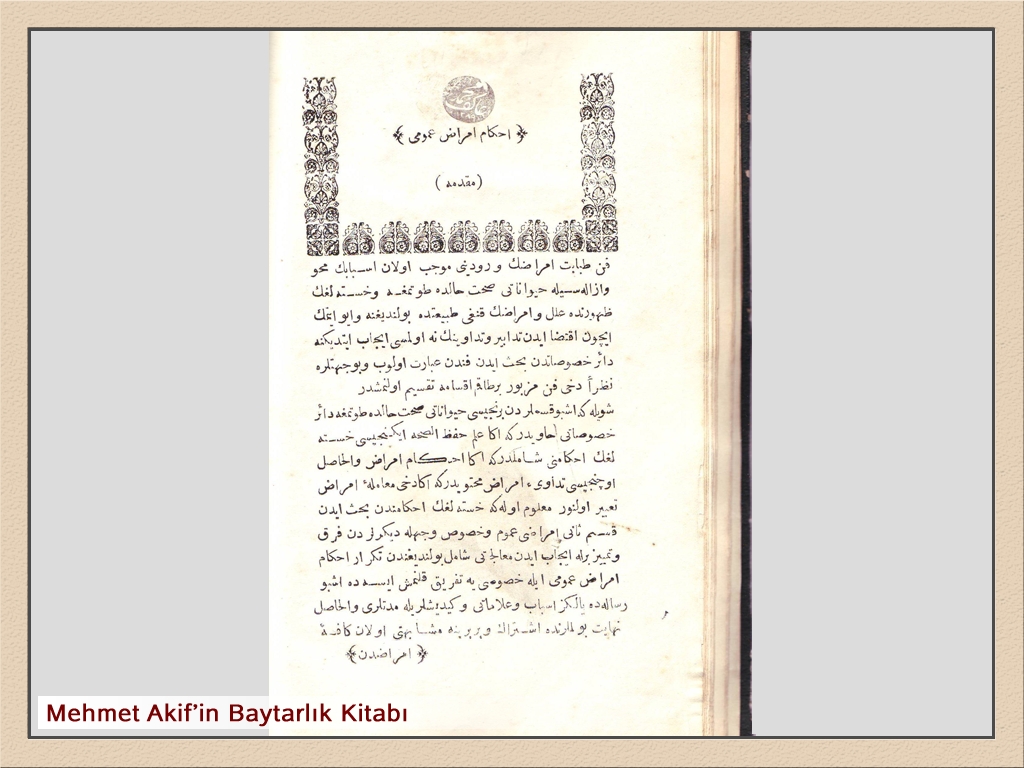 ﴿ احكام امراض عمومی ﴾
(مقدمه)
فن طبابت امراضك ورودينی موجب اولان اسبابك محو
وازاله سيله حيواناتی صحت حالده طوتمغه وخسته لغك
ظهورنده علل وامراضك قنغی طبيعتده بولنديغنه وايو ايتمك
ايچون اقتضا ايدن تدابير وتداوينك نه اولمسی ايجاب ايتديكنه
دائر خصوصاتدن بحث ايدن فندن عبارت اولوب وبوجهتلره
نظراً دخی فن مزبور برطاقم اقسامه تقسيم اولنمشدر
شويله كه اشبو قسملردن برنجيسی حيواناتی صحت حالده طوتمغه دائر
خصوصاتی حاويدركه اكا علم حفظ الصحه ايكنجيسی خسته
لغك احكامنی شاملدركه اكا احكام امراض والحاصل
اوچنجيسی تداوی امراض محتويدركه اكادخی معاملهٔ امراض
تعبير اولنور معلوم اوله كه خسته لغك احكامندن بحث ايدن
قسم ثانی امراضی عموم وخصوص وجهله ديكرلردن فرق
وتمييز برله ايجاب ايدن معالجاتی شامل بولنديغندن تكرار احكام
امراض عمومی ايله خصوصی يه تفريق قلنمش ايسه ده اشبو
رساله ده يالكز اسباب وعلاماتی وكيديشلريله مدتلری والحاصل
نهايت بولملرنده اشتراك وبربرينه مشابهتی اولان كافهٔ
﴿ امراضدن ﴾
Mehmet Akif'in Baytarlık Kitabı